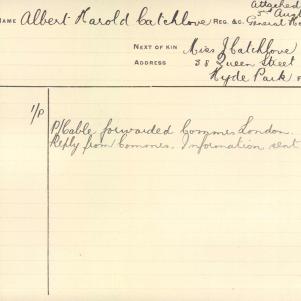 Attached
5th Aust
NAME Albert Harold Catchlove REG. &C. General Ho
NEXT OF KIN Miss J Catchlove
ADDRESS 38 Queen Street
Hyde Park
1/P
P/Cable forwarded Commes London.
Reply from Commes. Information sent